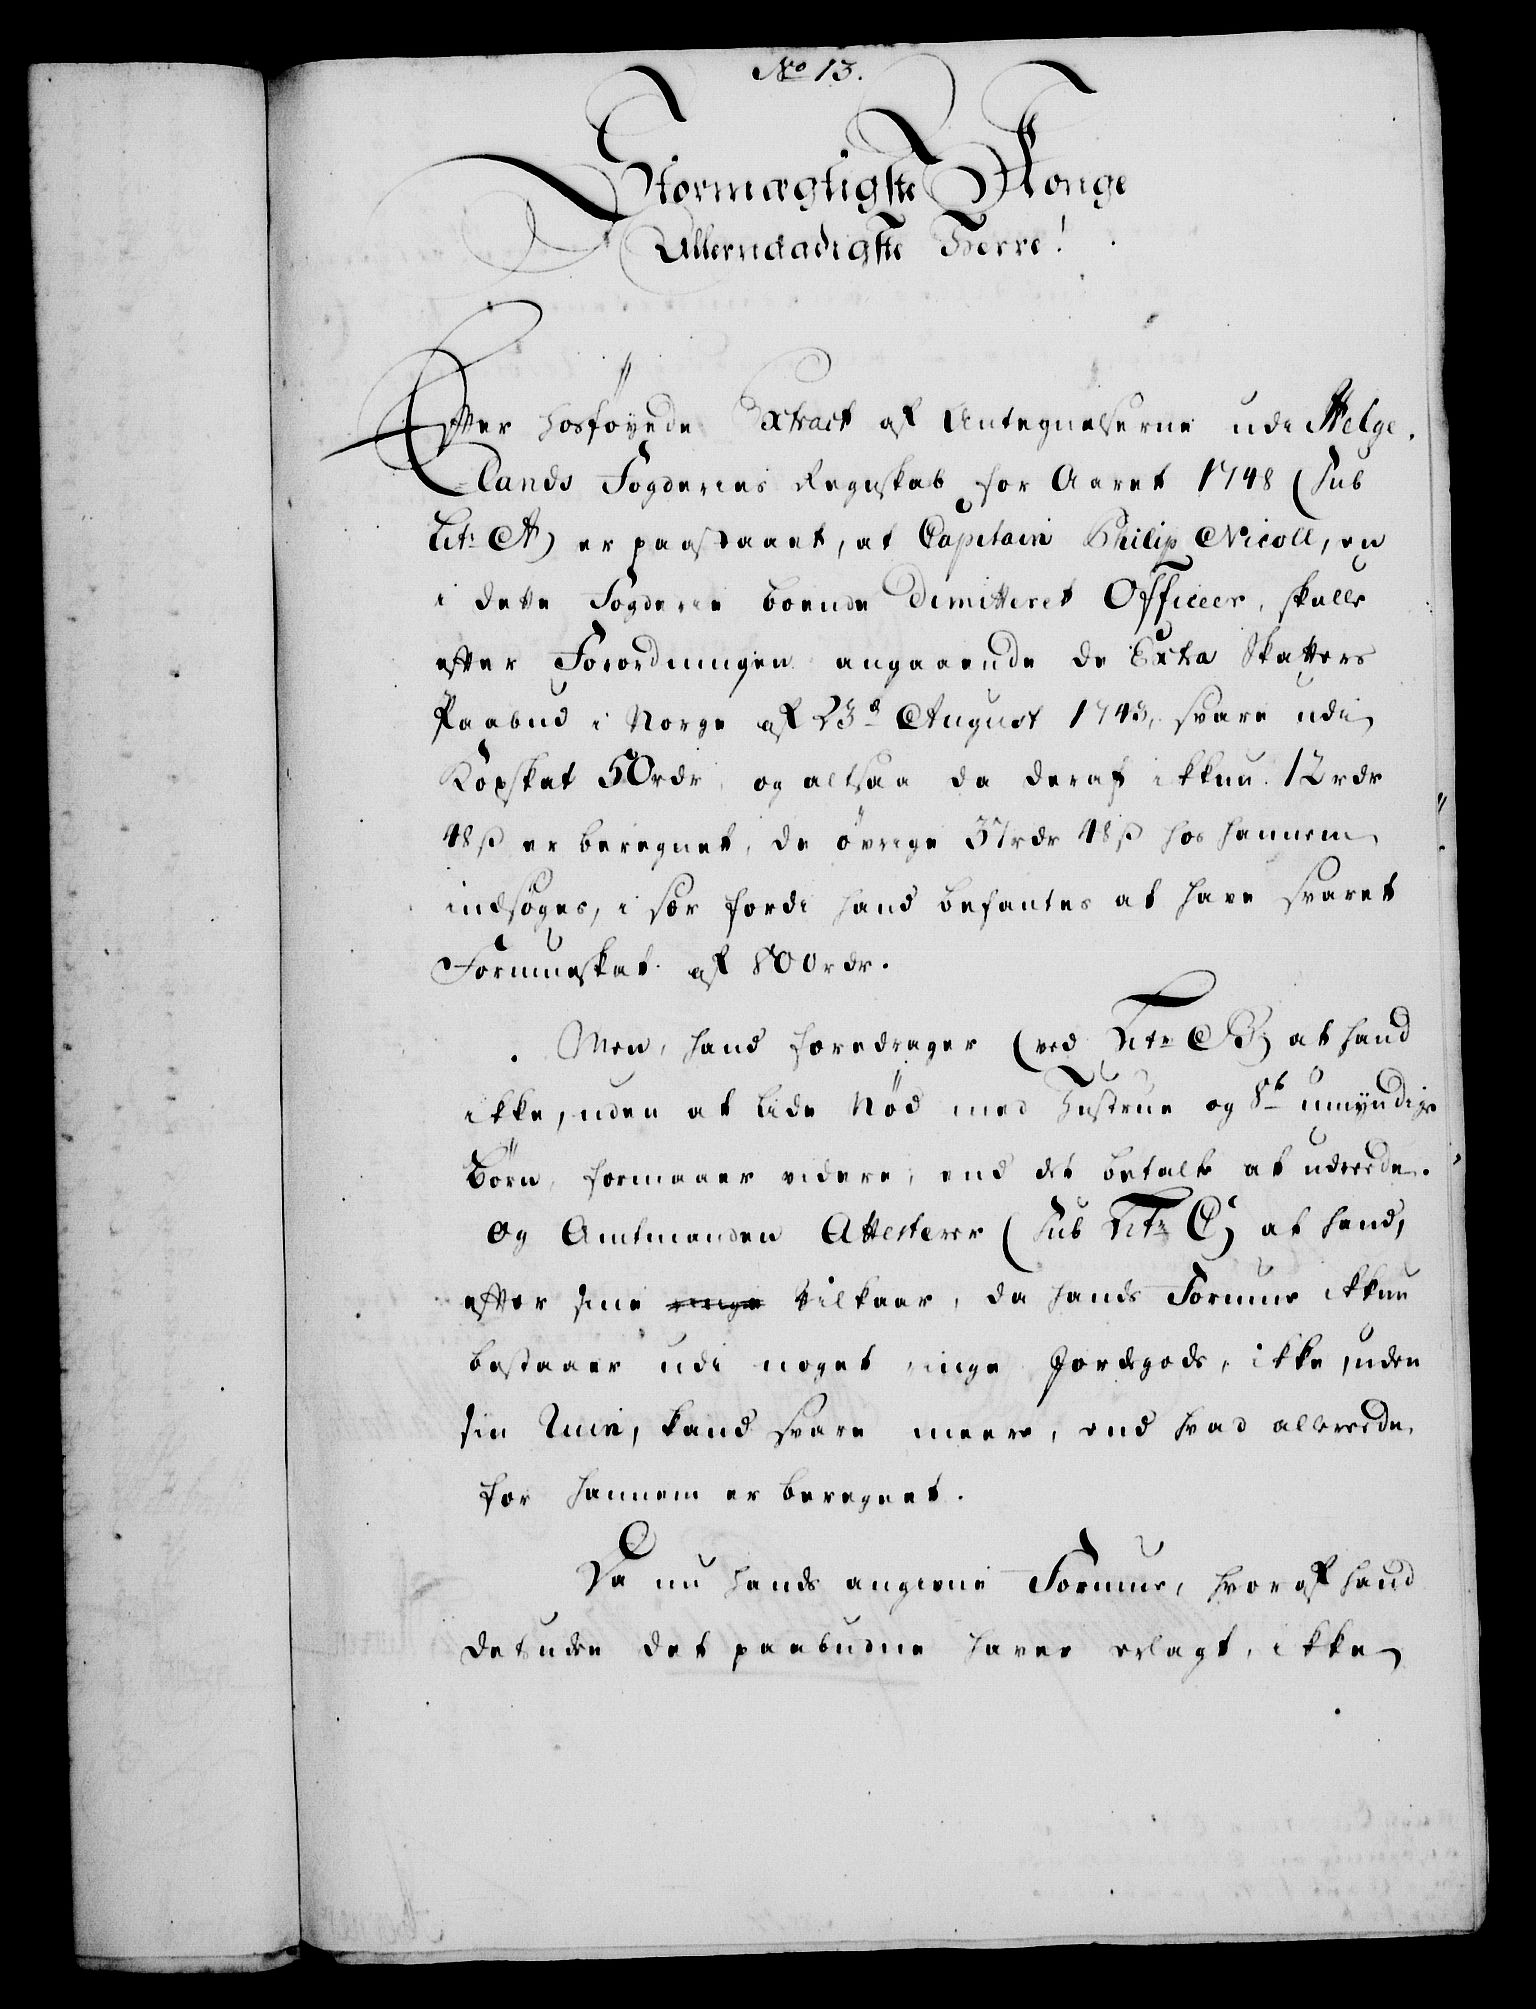 No 13.
Stormægtigste Konge
Allernaadigste Herre!
Efter hosføyede Extract af Antegnelserne udi Helge-
lands Fogderies Regnskab for Aaret 1748 (Sub
Litr: A) er paastaaet, at Capitain Philip Nicoll, en
i dette Fogderie boende Dimitteret Officeer, skulle
efter Forordningen angaaende de Extra Skatters
Paabud i Norge af 23d August 1743, svare udi
Kopskat 50 rdr, og altsaa da deraf ikkun 12 rdr
48 ß er beregnet, de øvrige 37 rdr 48 ß hos hannem
indsøges, i sær fordi hand befantes at have svaret
Formueskat af 800 rdr.
Men, hand foredrager (ved Litr B) at hand
ikke, uden at lide Nød med Hustrue og 8te umyndige
Børn, formaaer videre, end det betalte at udreede.
Og Amtmanden Attesterer (Sub Litr C) at hand,
efter sine ringe Vilkaar, da hands Formue ikkun
bestaaer udi noget ringe Jordegods, ikke, uden
sin Ruin, kand svare meere, end hvad allereede,
for hannem er beregnet.
Da nu hands angivne Formue, hvoraf hand
desuden det paabudne haver erlagt, ikke